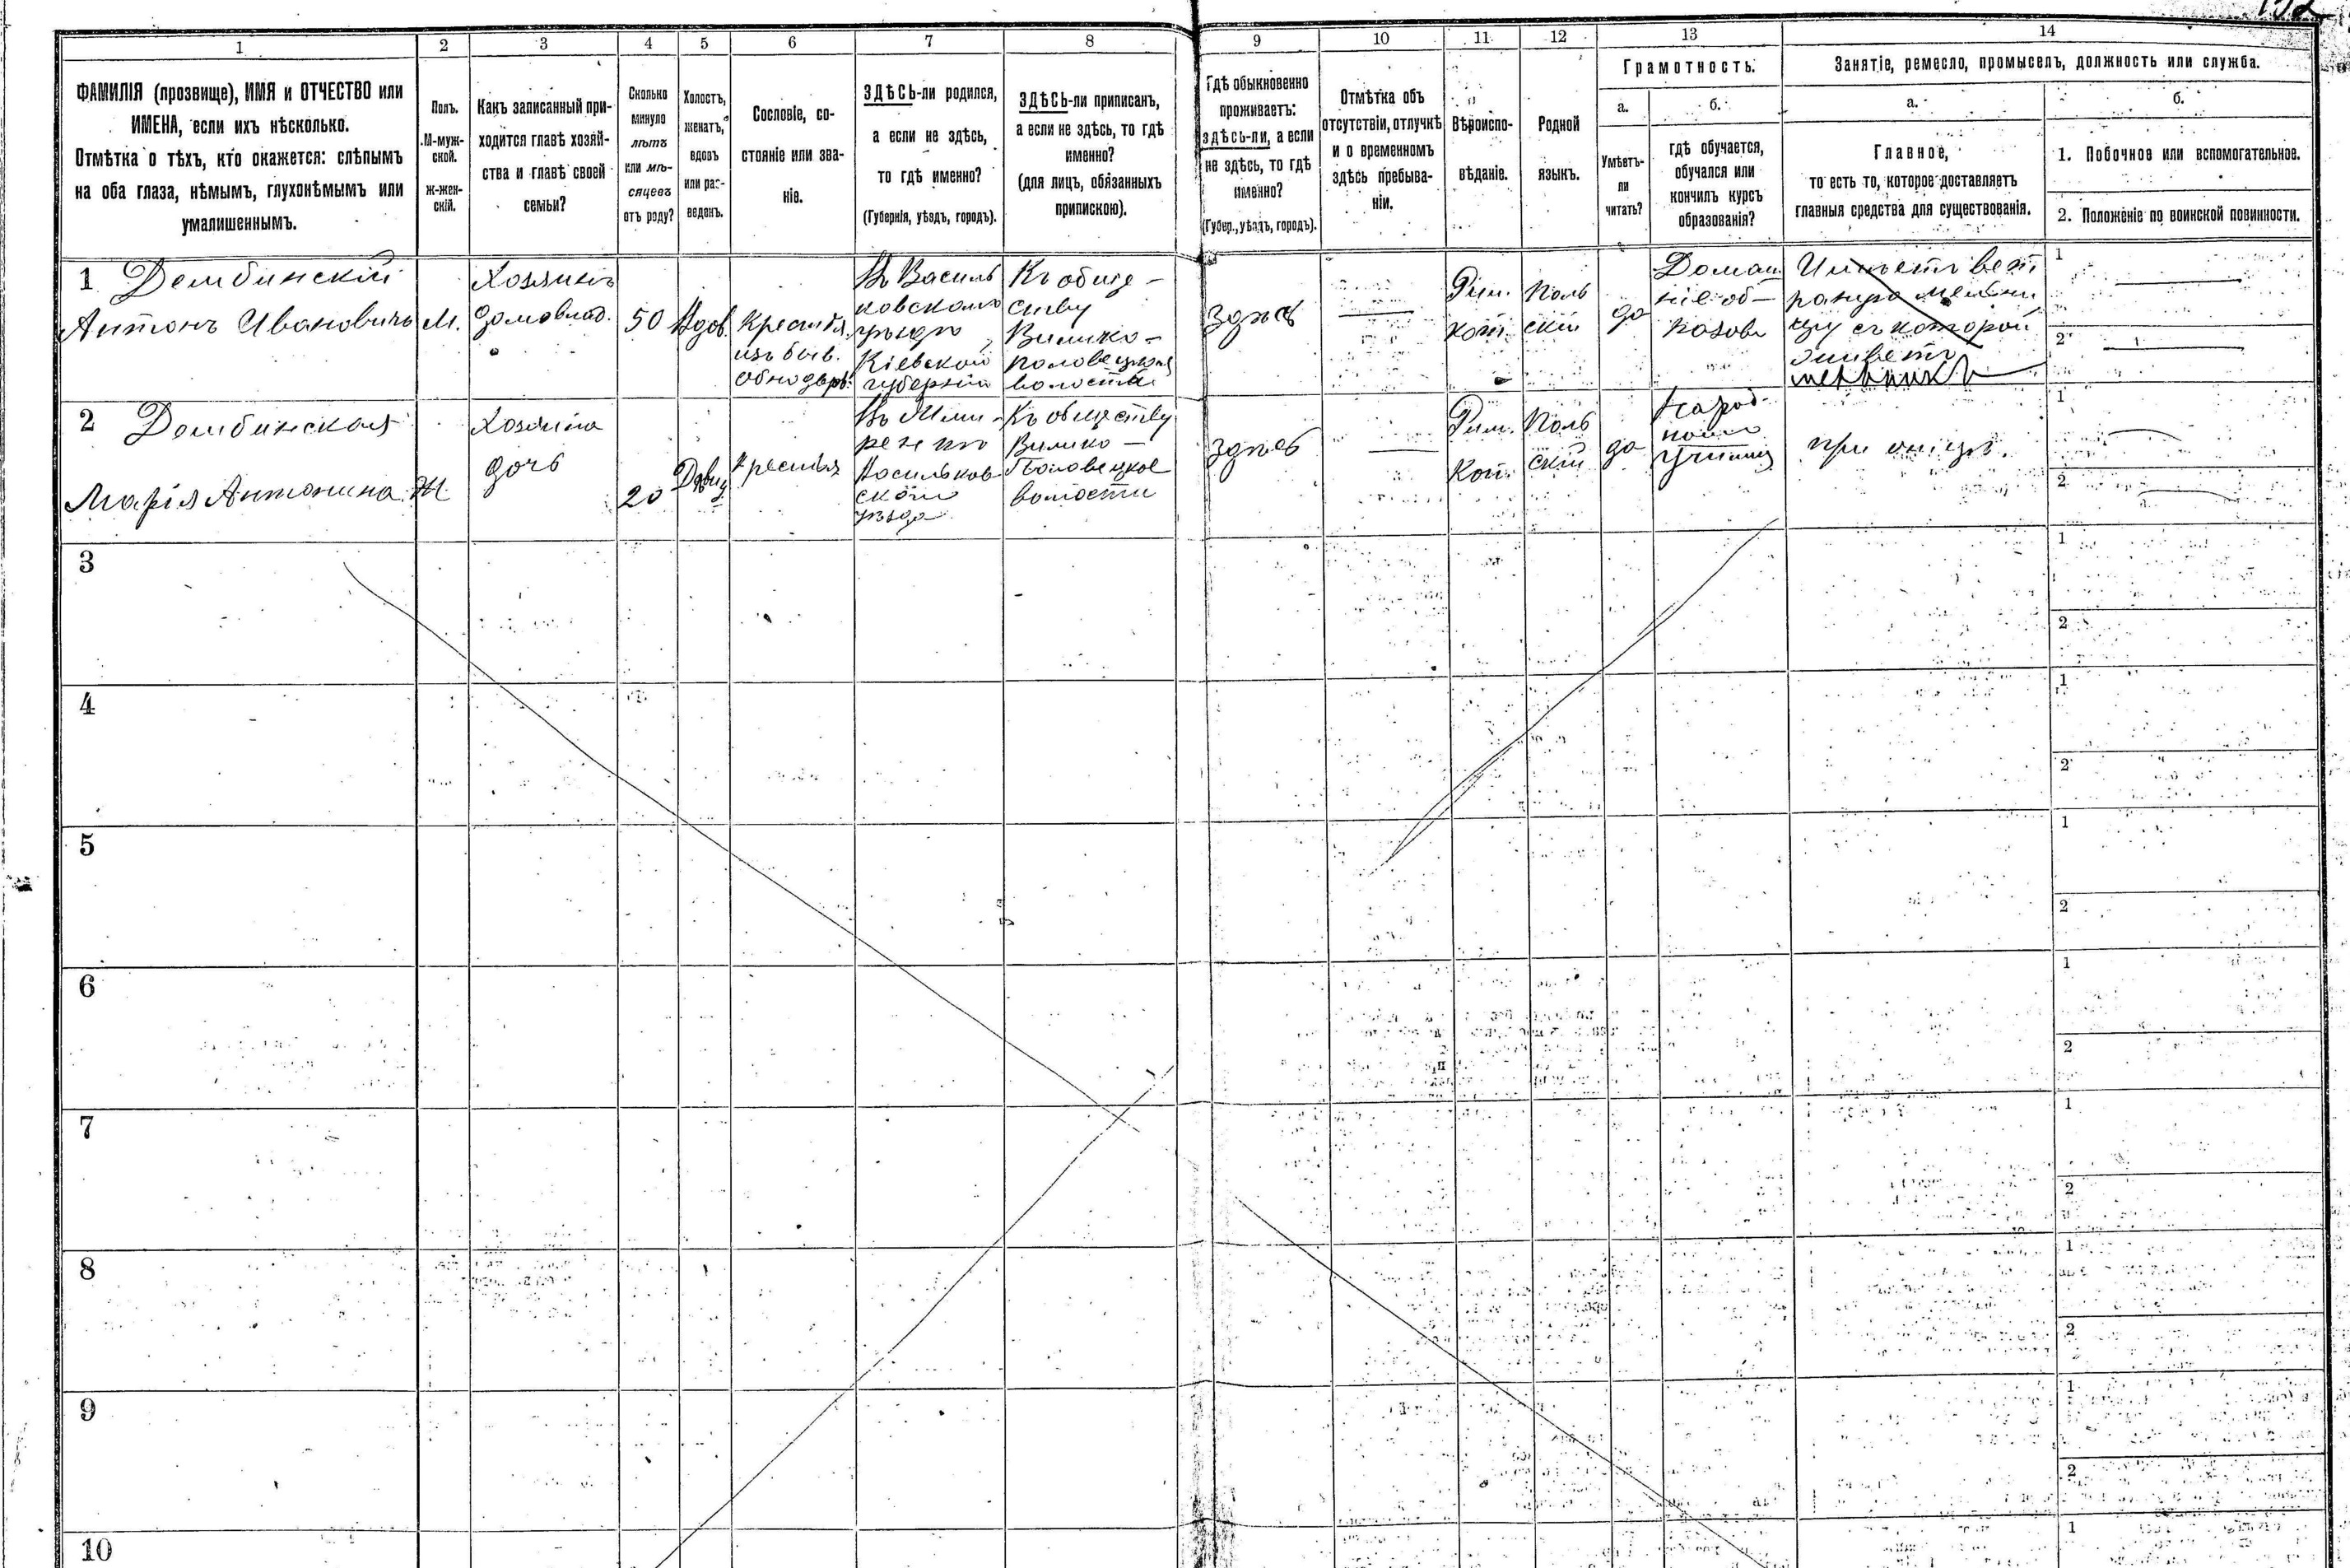 1
2
3
4
5
6
7
8
9
10
11
12
13
14
ФАМИЛІЯ (прозвище), ИМЯ и ОТЧЕСТВО или
ИМЕНА, если ихъ нѣсколько.
Отмѣтка о тѣхъ, кто окажется: слѣпымъ
на оба глаза, нѣмымъ, глухонѣмымъ или
умалишеннымъ.
Полъ.
М-муж-
ской.
ж-жен-
скій.
Какъ записанный при-
ходится главѣ хозяй-
ства и главѣ своей
семьи?
Сколько
минуло
лѣтъ
или мѣ-
сяцевъ
отъ роду?
Холостъ,
женатъ,
вдовъ
или раз-
веденъ.
Сословіе, со-
стояніе или зва-
ніе.
ЗДѢСЬ-ли родился,
а если не здѣсь,
то гдѣ именно?
(Губернія, уѣздъ, городъ).
ЗДѢСЬ-ли приписанъ,
а если не здѣсь, то гдѣ
именно?
(для лицъ, обязанныхъ
припискою).
Гдѣ обыкновенно
проживаетъ:
здѣсь-ли, а если
не здѣсь, то гдѣ
именно?
(Губер., уѣздъ, городъ).
Отмѣтка объ
отсутствіи, отлучкѣ
и о временномъ
здѣсь пребыва-
ніи.
Вѣроиспо-
вѣданіе.
Родной
языкъ.
Грамотность.
а.
Умѣетъ-
ли
читать?
б.
гдѣ обучается,
обучался или
кончилъ курсъ
образованія?
Занятіе, ремесло, промыселъ, должность или служба.
а.
Главное,
то есть то, которое доставляетъ
главныя средства для существованія.
б.
1. Побочное или вспомогательное.
2. Положеніе по воинской повинности.
1 Дембинскій
Антонъ Ивановичъ
М.
Хозяинъ
домовлад.
50
Вдов.
Крестья.
изъ быв.
однодвор.
Въ Василь
ковскомъ
уѣздѣ
Кіевской
губерніи
Къ обще-
ству
Велико-
половецкой
волости
Здѣсь
Рим.
кат.
Поль
скій
да
Домаш
Имѣетъ вет
ряную мельни
цу съ которой
живетъ
1
2
2 Дембинская
Марія Антонина
Ж
Хозяина
дочь
20
Дѣвиц
Крестья
Васильков
ского
уѣзда
Къ обществу
Велико-
Половецкое
волости
здѣсь
Рим.
Кат.
Поль
скій
да
Народ
номъ
училищ
при отцѣ.
1
2
3
1
2
4
1
2
5
1
2
6
1
2
7
1
2
8
1
2
9
1
2
10
1